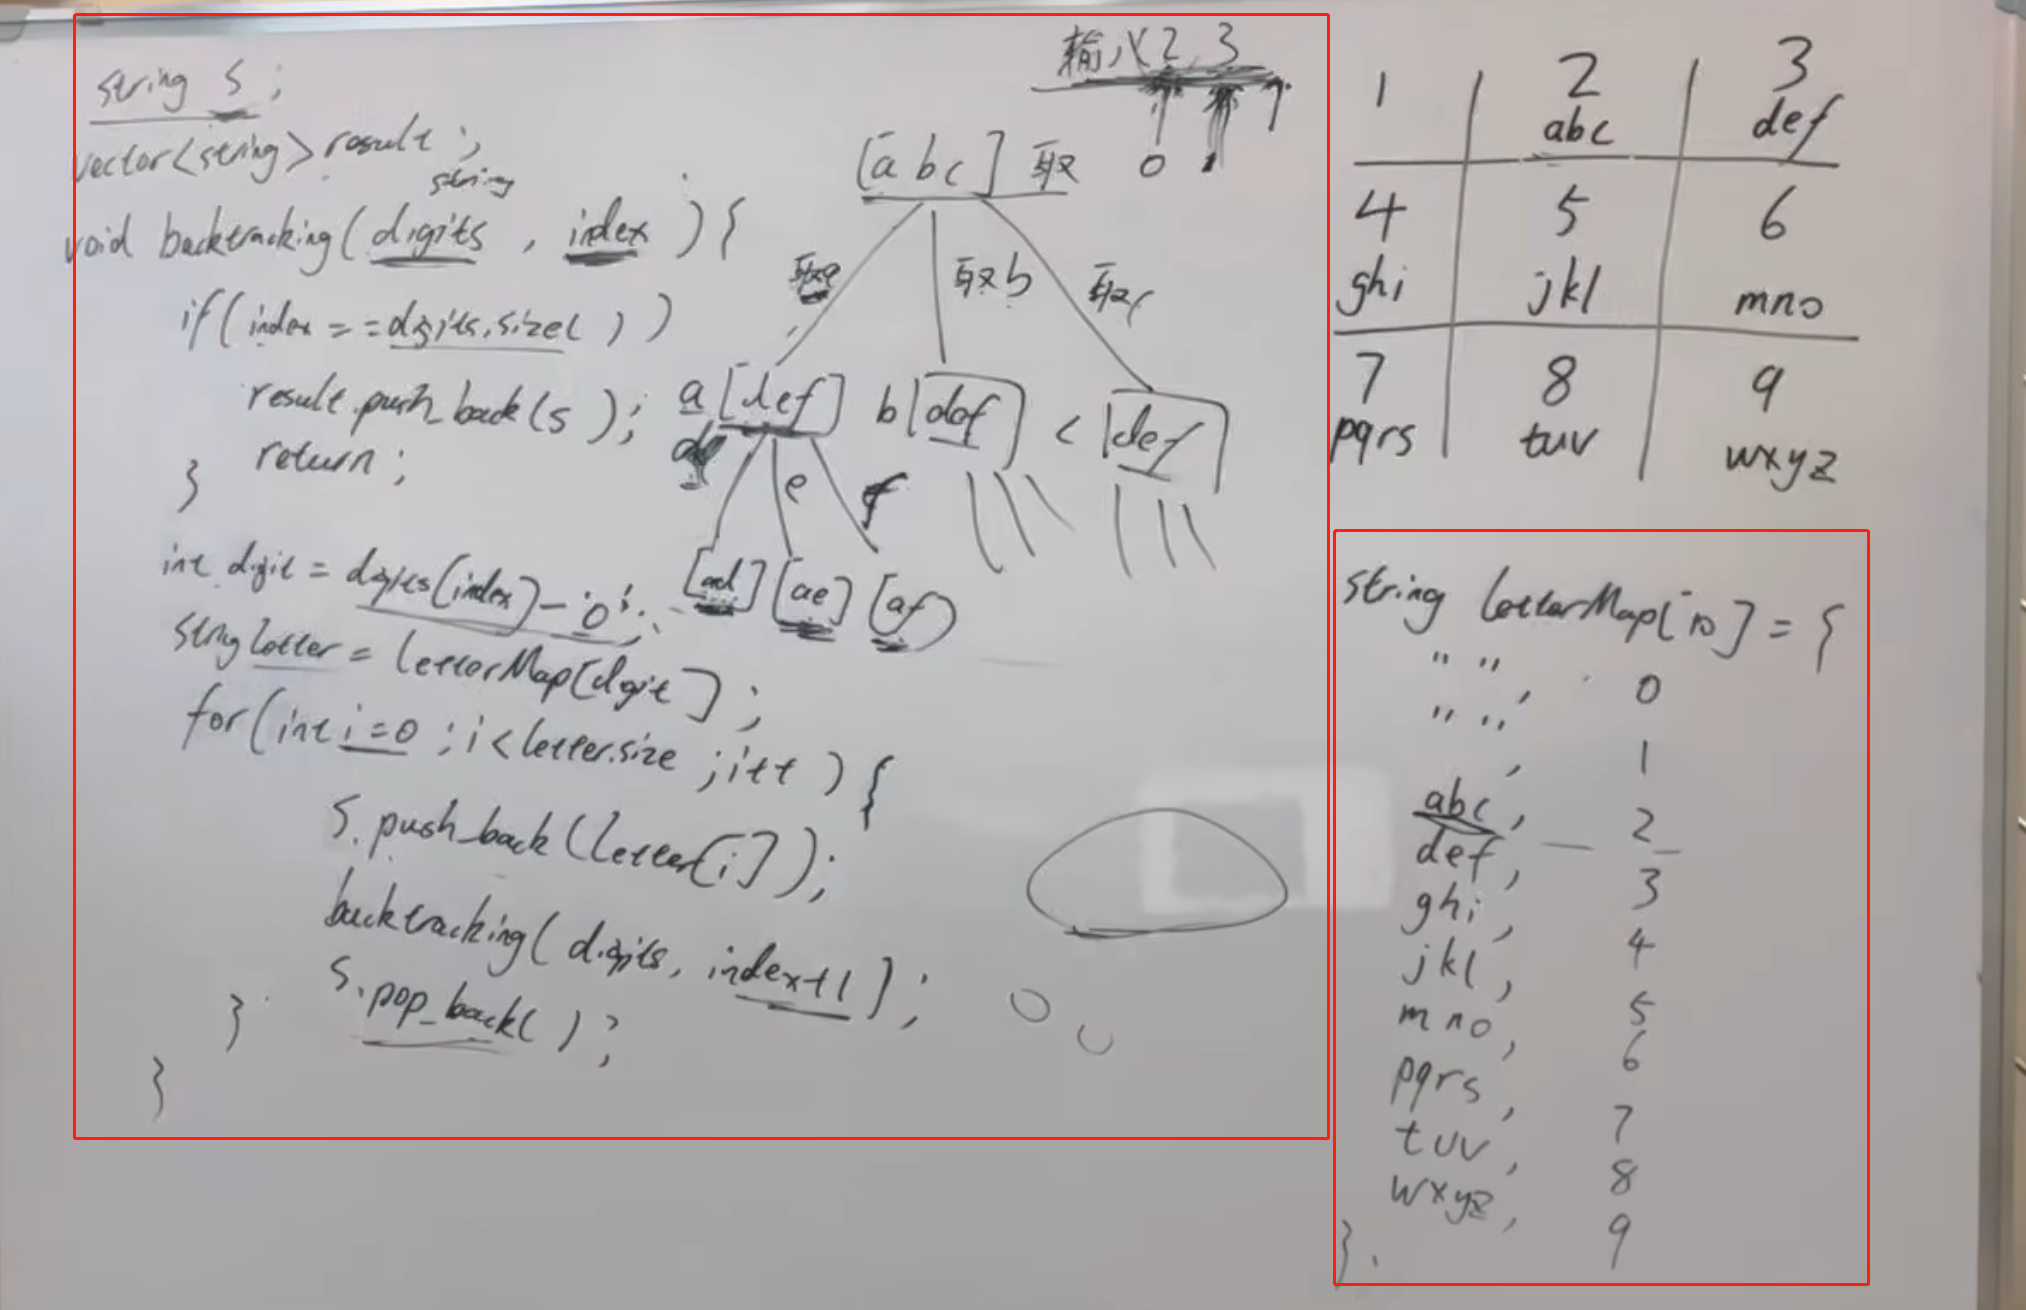 string s;
vector<string> result;
string
void backtracking(digits, index){
if(index==digits.size())
result.push_back(s);
return;
}
int digit = digits(index)-'0';
string letter = letterMap[digit];
for(int i=0;i<letter.size;i++){
s.push_back(letter[i]);
backtracking(digits, index+1);
s.pop_back();
}
}
输入2,3
[abc] 取 0 1
取a 取b 取c
a[def] b[def] c[def]
d e f
[ad] [ae] [af]
1 2 3
abc def
4 5 6
ghi jkl mno
7 8 9
pqrs tuv wxyz
string letterMap[10]={
"", 0
"", 1
abc, 2
def, 3
ghi, 4
jkl, 5
mno, 6
pqrs, 7
tuv, 8
wxyz, 9
}.